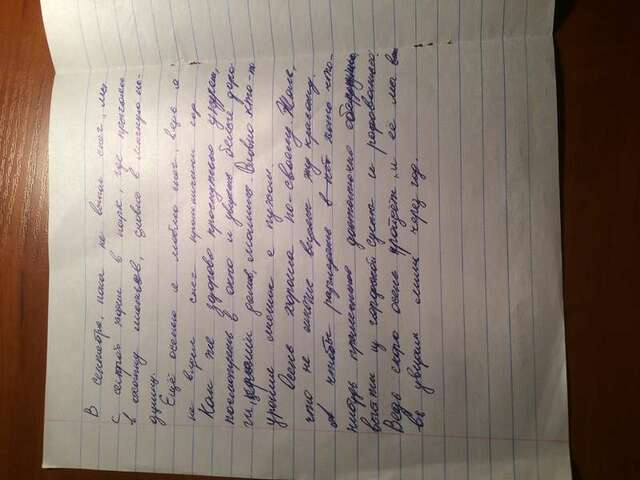 В сентябре, пока не выпал снег, мы
с сестрой ходим в парк, где прыгаем
в охапку листьев, словно в мягкую по-
душку.
Ещё осенью я люблю снег, ведь я
не видел снег практически год
Как же здорово проснуться утром,
посмотреть в окно и увидеть белые доро-
ги, крыши домов, машины. Словно кто-то
уронил мешок с пухом.
Осень хороша по-своему. Жаль,
что не многие видят эту красоту.
А чтобы разглядеть в ней хоть что-
нибудь приятное достаточно
выйти из городской суеты и
Ведь скоро осень пройдёт, и её мы
увидим лишь через год.